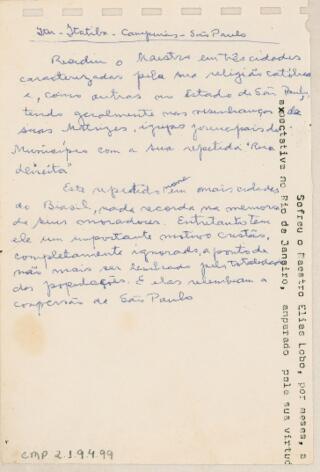 Itu - Itatiba - Campinas - São Paulo
Residiu o Maestro em três cidades
caracterizadas pela sua religião católica
e, como outras no Estado de São Paulo,
tendo geralmente nas visinhanças de
suas Matrizes, igrejas principais do
Municipio com a sua repetida "Rua
direita"
Este repetido nome em mais cidades
do Brasil, nada recorda na memoria
de seus moradores. Entretanto tem
ele um importante motivo cristão,
completamente ignorado, a ponto de
não mais ser lembrado pela totalidade
das populações. E elas relembram a
conversão de São Paulo
Sofreu o Maestro Elias Lobo, por meses, a
expectativa no Rio de Janeiro, amparado pela sua virtud
CMP 2.1.9.4.99